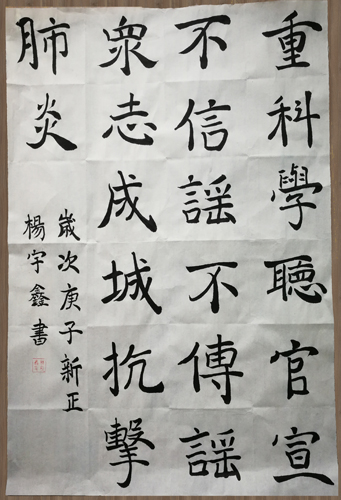 重科學聽官宣
不信謡不傳謡
衆志成城抗擊
肺炎
歲次庚子新正
楊宇鑫書